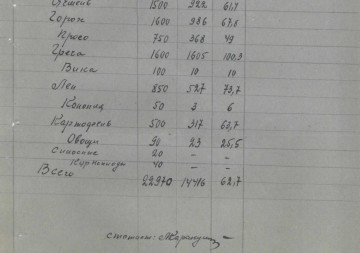 Ячмень 1500 922 61,7
Горох 1600 986 67,8
Просо 750 368 49
Греча 1600 1605 100,3
Вика 100 10 10
Лен 850 527 73,7
Конопля 50 3 6
Картофель 500 317 63,7
Овощи 90 23 25,5
Силосные 20 – –
Корнеплоды 40 – –
Всего 22970 14416 62,7